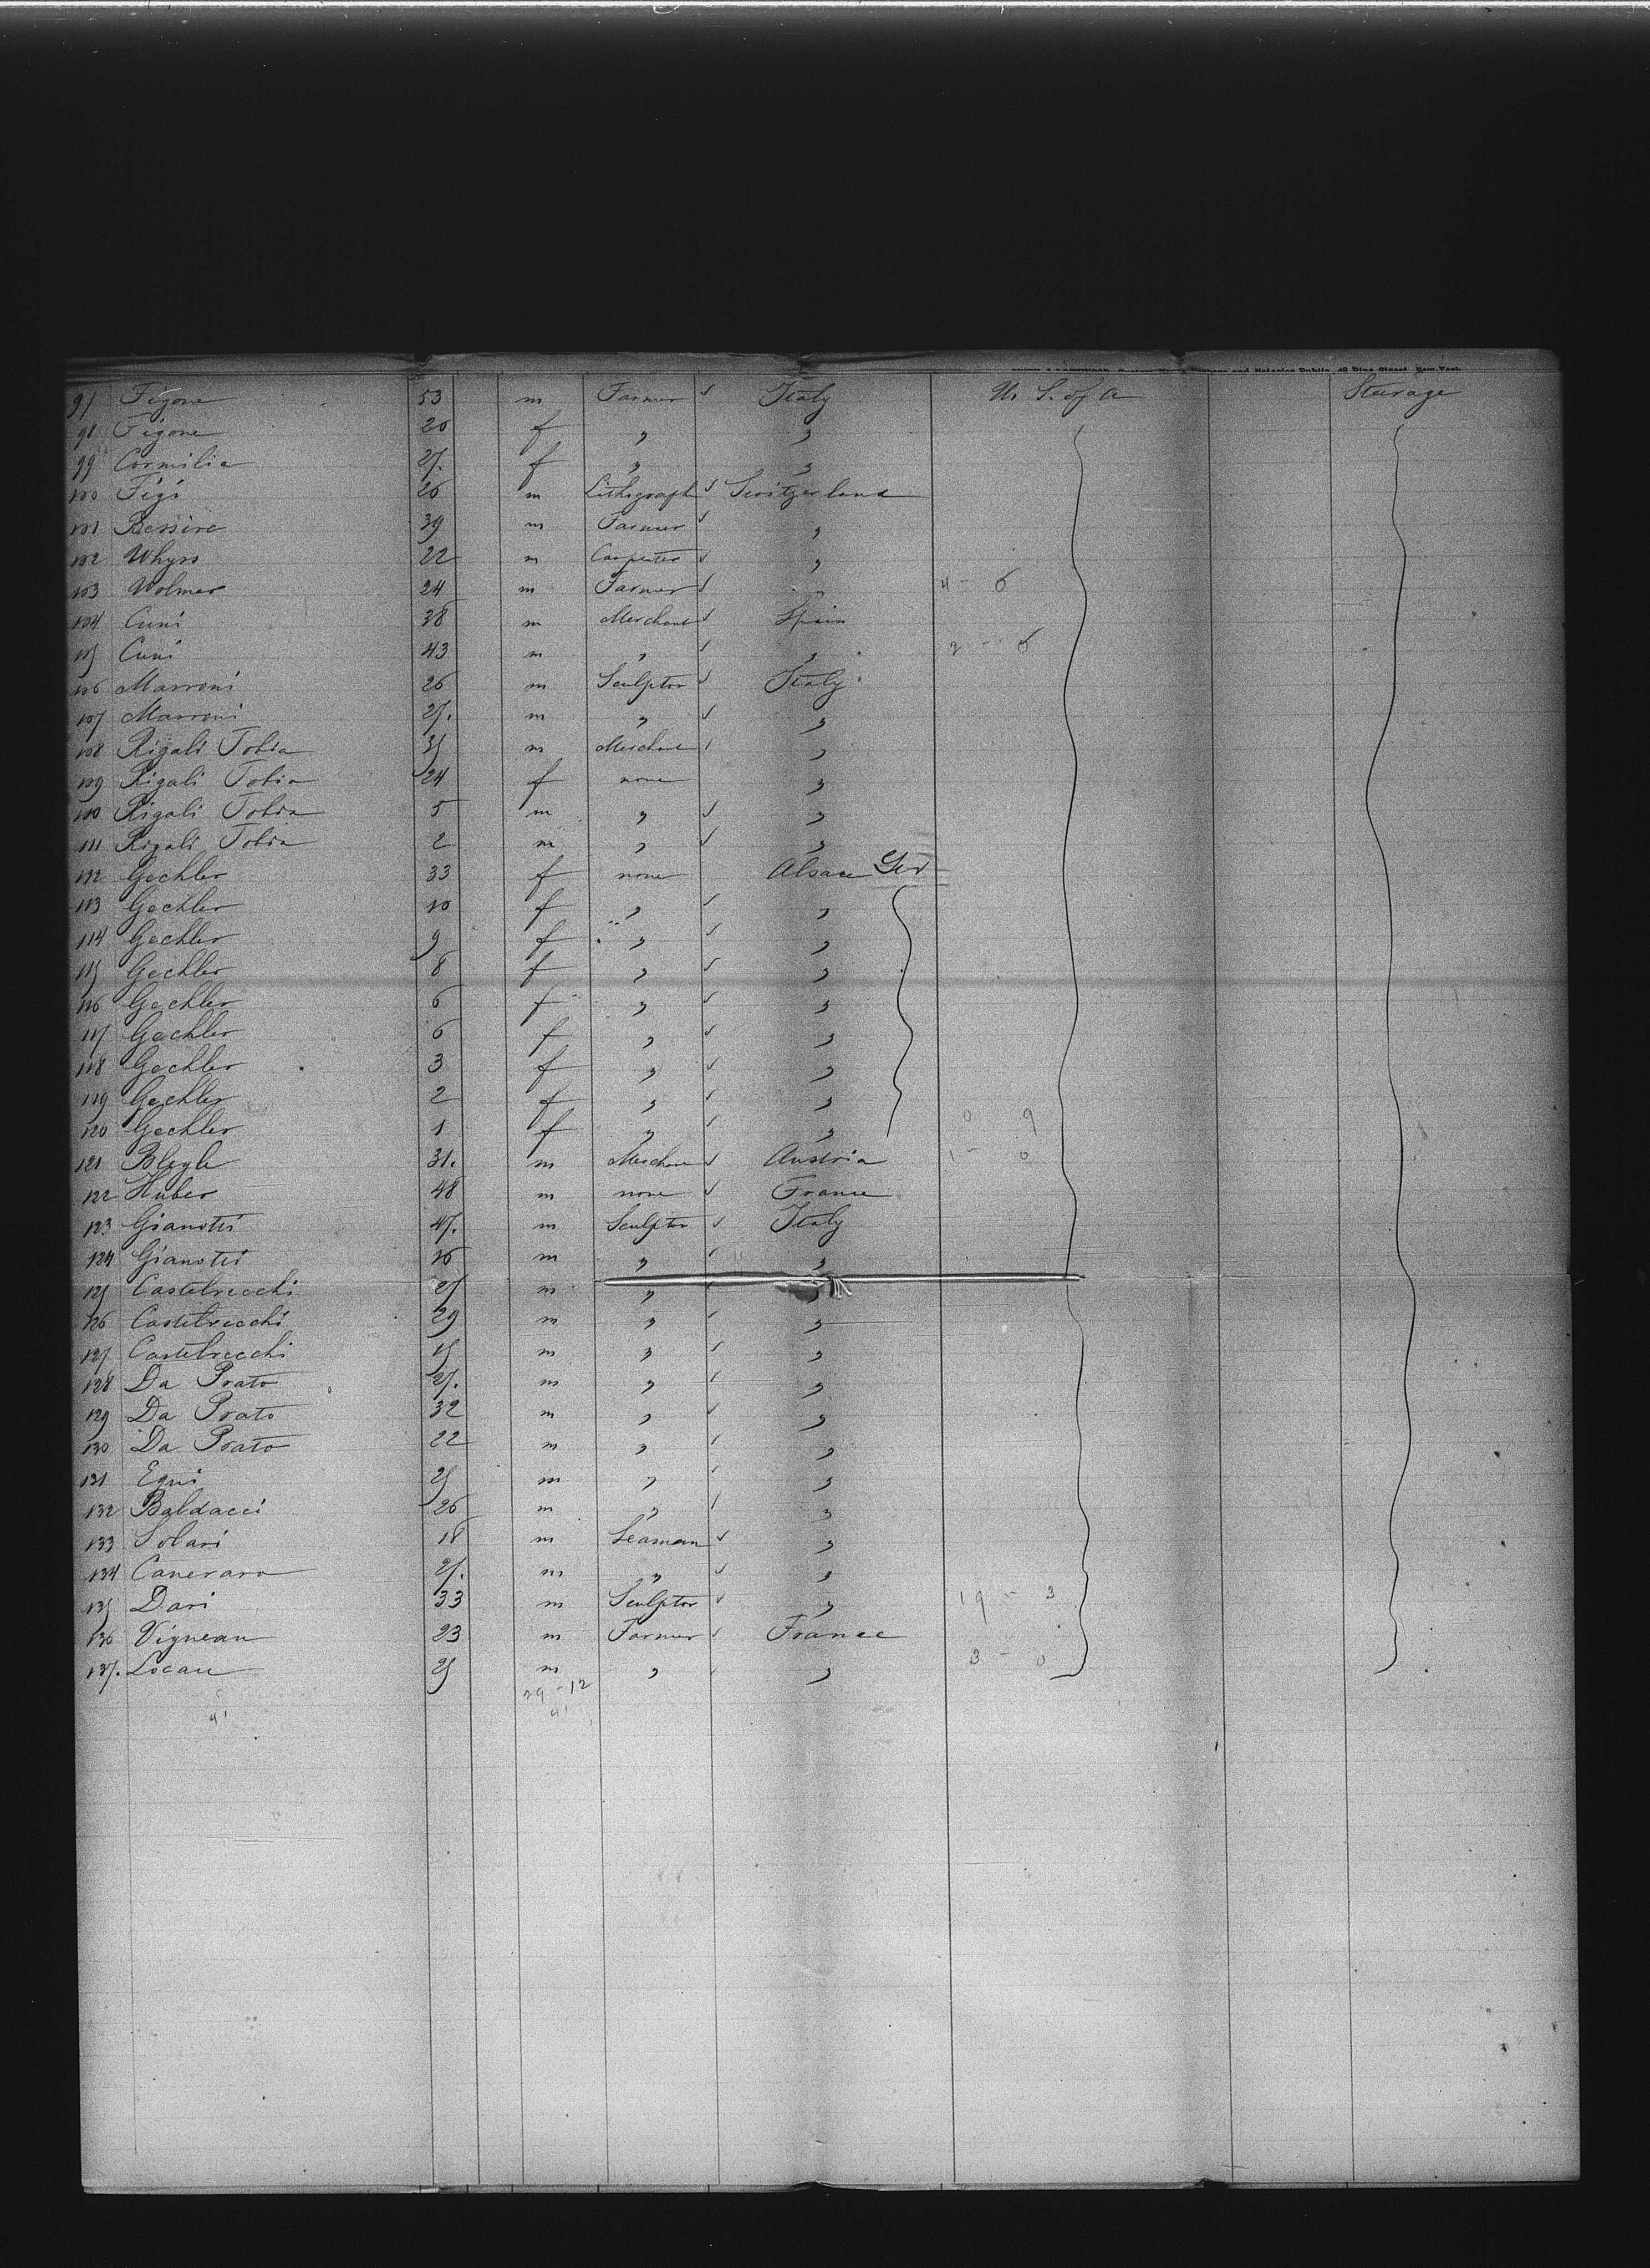 97 Figone 53 m Farmer Italy U. S. of A Steerage
98 Figone 20 f " "
99 Cormilia 27. f " "
100 Figi 26 m Lithograph Switzerland
101 Bessire 39 m Farmer "
102 Whyss 22 m Carpenter "
103 Wolmer 24 m Farmer " 4 - 6
104 Cuni 38 m Merchant Spain
105 Cuni 43 m " " 2 - 6
106 Marroni 26 m Sculptor Italy
107 Marroni 27. m " "
108 Rigali Tobia 35 m Merchant "
109 Rigali Tobia 24 f none "
110 Rigali Tobia 5 m " "
111 Rigali Tobia 2 m " "
112 Gechler 33 f none Alsace Ger
113 Gechler 10 f " "
114 Gechler 9 f " "
115 Gechler 8 f " "
116 Gechler 6 f " "
117 Gechler 6 f " "
118 Gechler 3 f " "
119 Gechler 2 f " "
120 Gechler 1 f " " 0 9
121 Blegle 31. m Merchant Austria 1 - 0
122 Huber 48 m none France
123 Gianotti 47. m Sculptor Italy
124 Gianotti 16 m " "
125 Castelvecchi 25 m " "
126 Castelvecchi 29 m " "
127 Castelvecchi 15 m " "
128 Da Prato 27. m " "
129 Da Prato 32 m " "
130 Da Prato 22 m " "
131 Equi 25 m " "
132 Baldacci 26 m " "
133 Solari 18 m Seaman "
134 Canevaro 27. m " "
135 Dari 33 m Sculptor " 19 - 3
136 Vigneau 23 m Farmer France
137. Locau 25 m " " 3 - 0
29 - 12
41 41